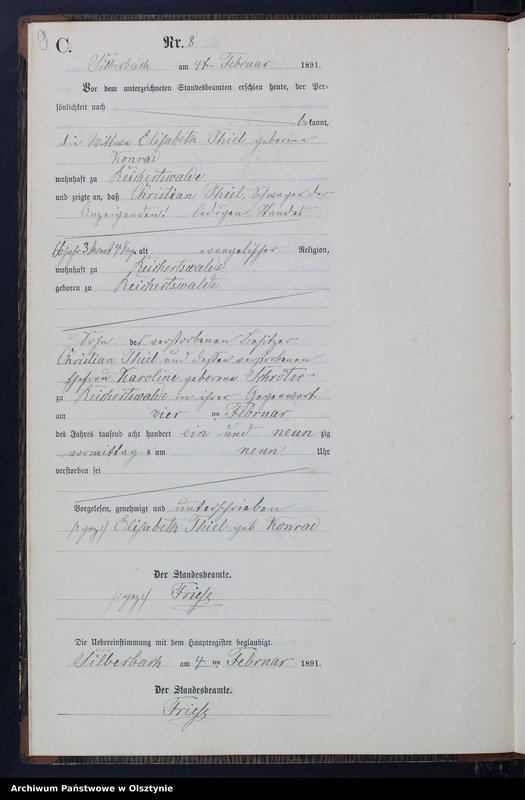 9
C.
Nr. 8
Silberbach am 4t Februar 1891.
Vor dem unterzeichneten Standesbeamten erschien heute, der Per-
sönlichkeit nach
bekannt,
die Wittwe Elisabeth Thiel geborene
Konrad
wohnhaft zu Reichertswalde
und zeigte an, daß Christian Thiel, Schwager der
Anzeigenden, ledigen Standes
66 Jahr 3 Monat alt evangelischer Religion,
wohnhaft zu Reichertswalde
geboren zu Reichertswalde
Sohn des verstorbenen Besitzer
Christian Thiel und dessen verstorbenen
Ehefrau Karoline geborene Schröter
zu Reichertswalde in ihrer Gegenwart
am vier ten Februar
des Jahres tausend acht hundert ein und neun zig
vormittags um neun Uhr
verstorben sei
Vorgelesen, genehmigt und unterschrieben
/:gez:/ Elisabeth Thiel geb Konrad
Der Standesbeamte.
/:gez:/ Friese
Die Uebereinstimmung mit dem Hauptregister beglaubigt.
Silberbach am 4 ten Februar 1891.
Der Standesbeamte.
Friese
Archiwum Państwowe w Olsztynie